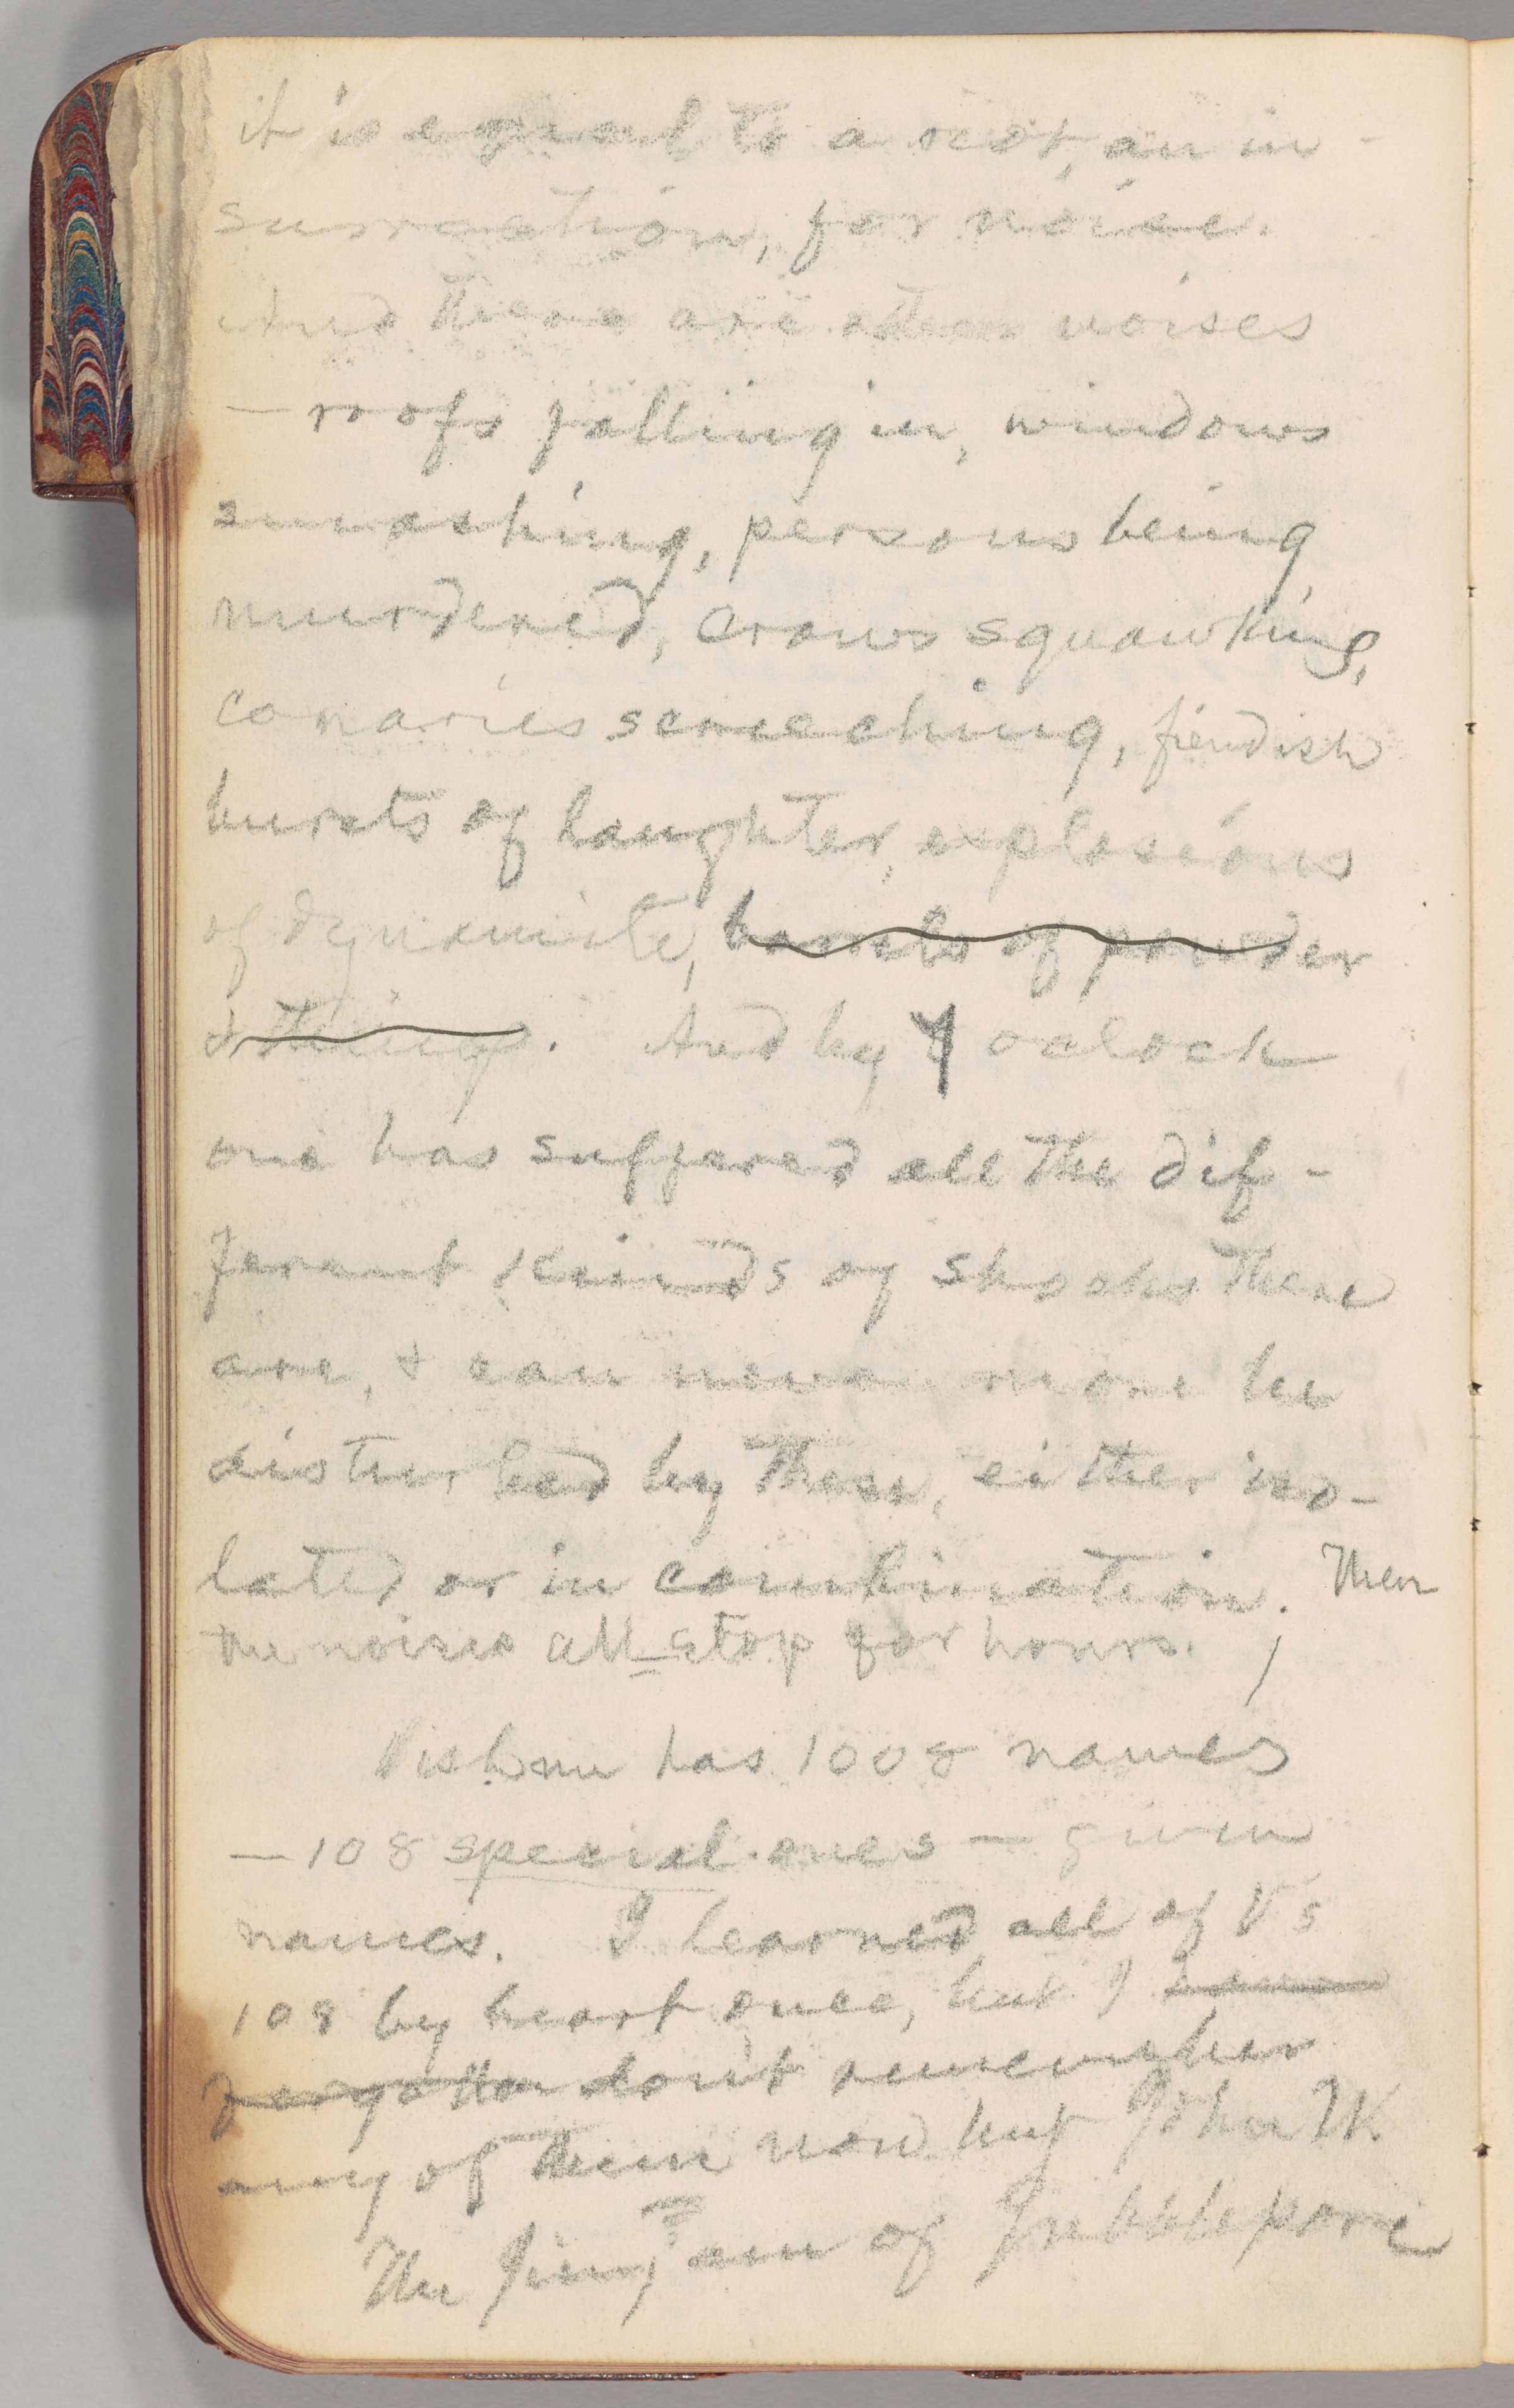 it is equal to a riot, an in-
surrection, for noise.
And there are other noises
— roofs falling in, windows
smashing, persons being
murdered, crows squawking,
canaries screeching, fiendish
bursts of laughter, explosions
of dynamite, barrels of powder
& things. And by 7 oclock
one has suffered all the dif-
ferent kinds of shocks there
are, & can never more be
disturbed by them, either iso-
lated or in combination. Then
the noises all stop for hours.
Vishnu has 1008 names
— 108 special ones — given
names. I learned all of V's
108 by heart once, but I have
forgotten don't remember
any of them now but John W.
The Jimjam of Jubblepore